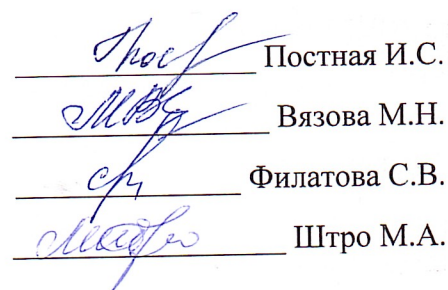 Постная И.С.
Вязова М.Н.
Филатова С.В.
Штро М.А.